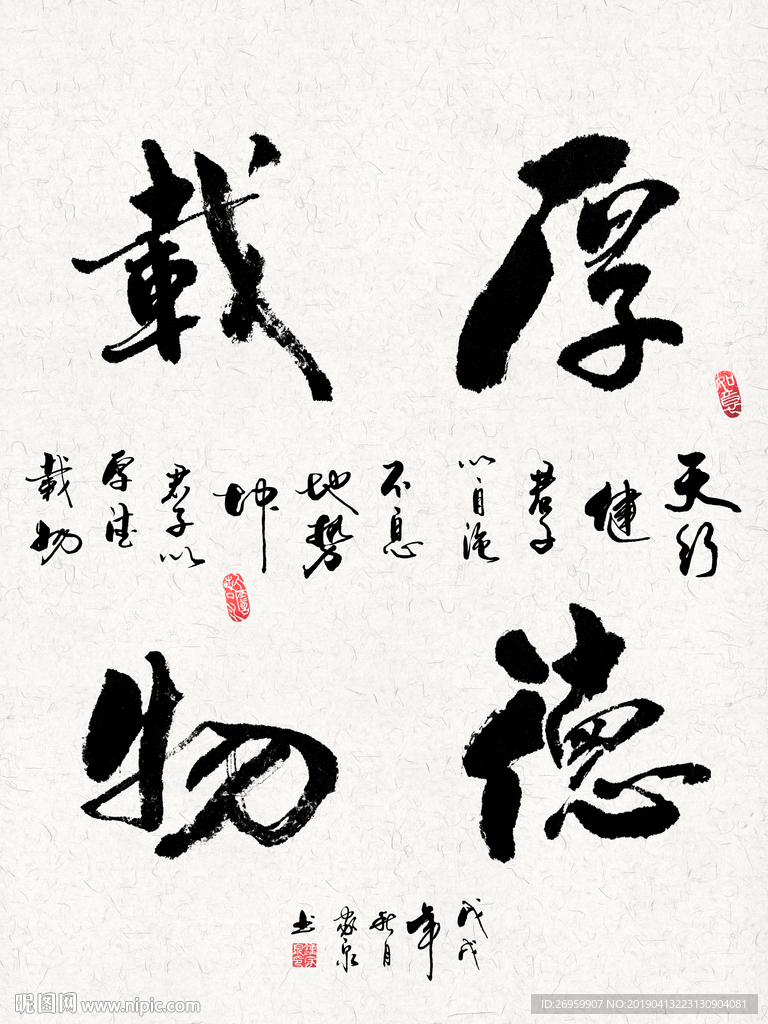 厚德
載物
天行
健
君子
以自强
不息
地势
坤
君子以
厚德
載物
戊戌
年
秋月
书
如意
昵图网 www.nipic.com
ID:26959907 NO:20190413223130904081